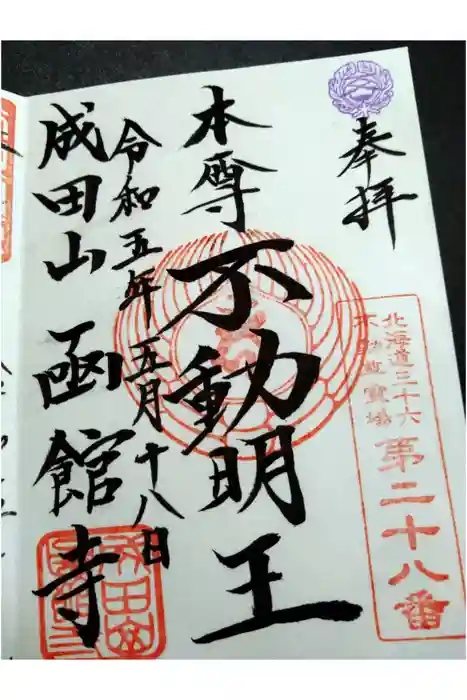 奉拝
北海道三十六
不動尊霊場
第二十八番
本尊
不動明王
令和五年五月十八日
成田山函館寺